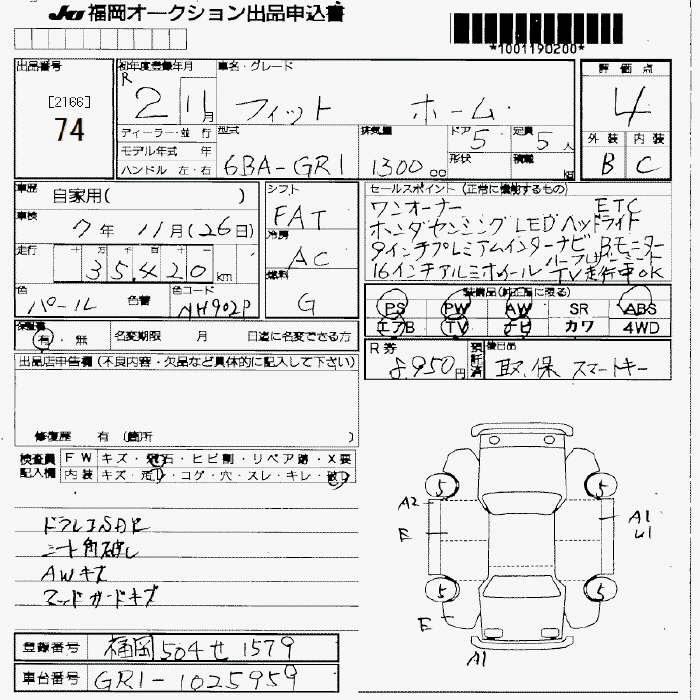 JU 福岡オークション出品申込書
*1001190200*
出品番号 [2166] 74
初年度登録年月 R 2 11月
車名・グレード フィット ホーム
評価点 4
外装 B 内装 C
ディーラー・並行
モデル年式 年
ハンドル 左・右
型式 6BA-GR1
排気量 1300 cc
ドア 5 定員 5人
形状 積載 kg
車歴 自家用( )
車検 7年 11月(26日)
走行 十 万 千 百 十 一 35,420km
色 パール 色替 色コード NH902P
シフト FAT
冷房 AC
燃料 G
セールスポイント(正常に機能するもの)
ワンオーナー ETC
ホンダセンシング LEDヘッドライト
9インチプレミアムインターナビ Bモニター
ハーフレザーシート
16インチアルミホイール TV走行中OK
装備品(純正品に限る)
PS PW AW SR ABS
エアB TV ナビ カワ 4WD
保証書 有・無 名変期限 月 日迄に名変できる方
R券 8,950円 預託済 後日品 取、保 スマートキー
出品店申告欄(不良内容・欠品など具体的に記入して下さい)
修復歴 有(箇所 )
検査員記入欄
FW キズ・飛石・ヒビ割・リペア跡・X要
内装 キズ・汚れ・コゲ・穴・スレ・キレ・破れ
シート角破レ
AWキズ
マッドガードキズ
5 5
A2 A1
E U1
5 5
E
A1
登録番号 福岡 504 せ 1579
車台番号 GR1-1025959